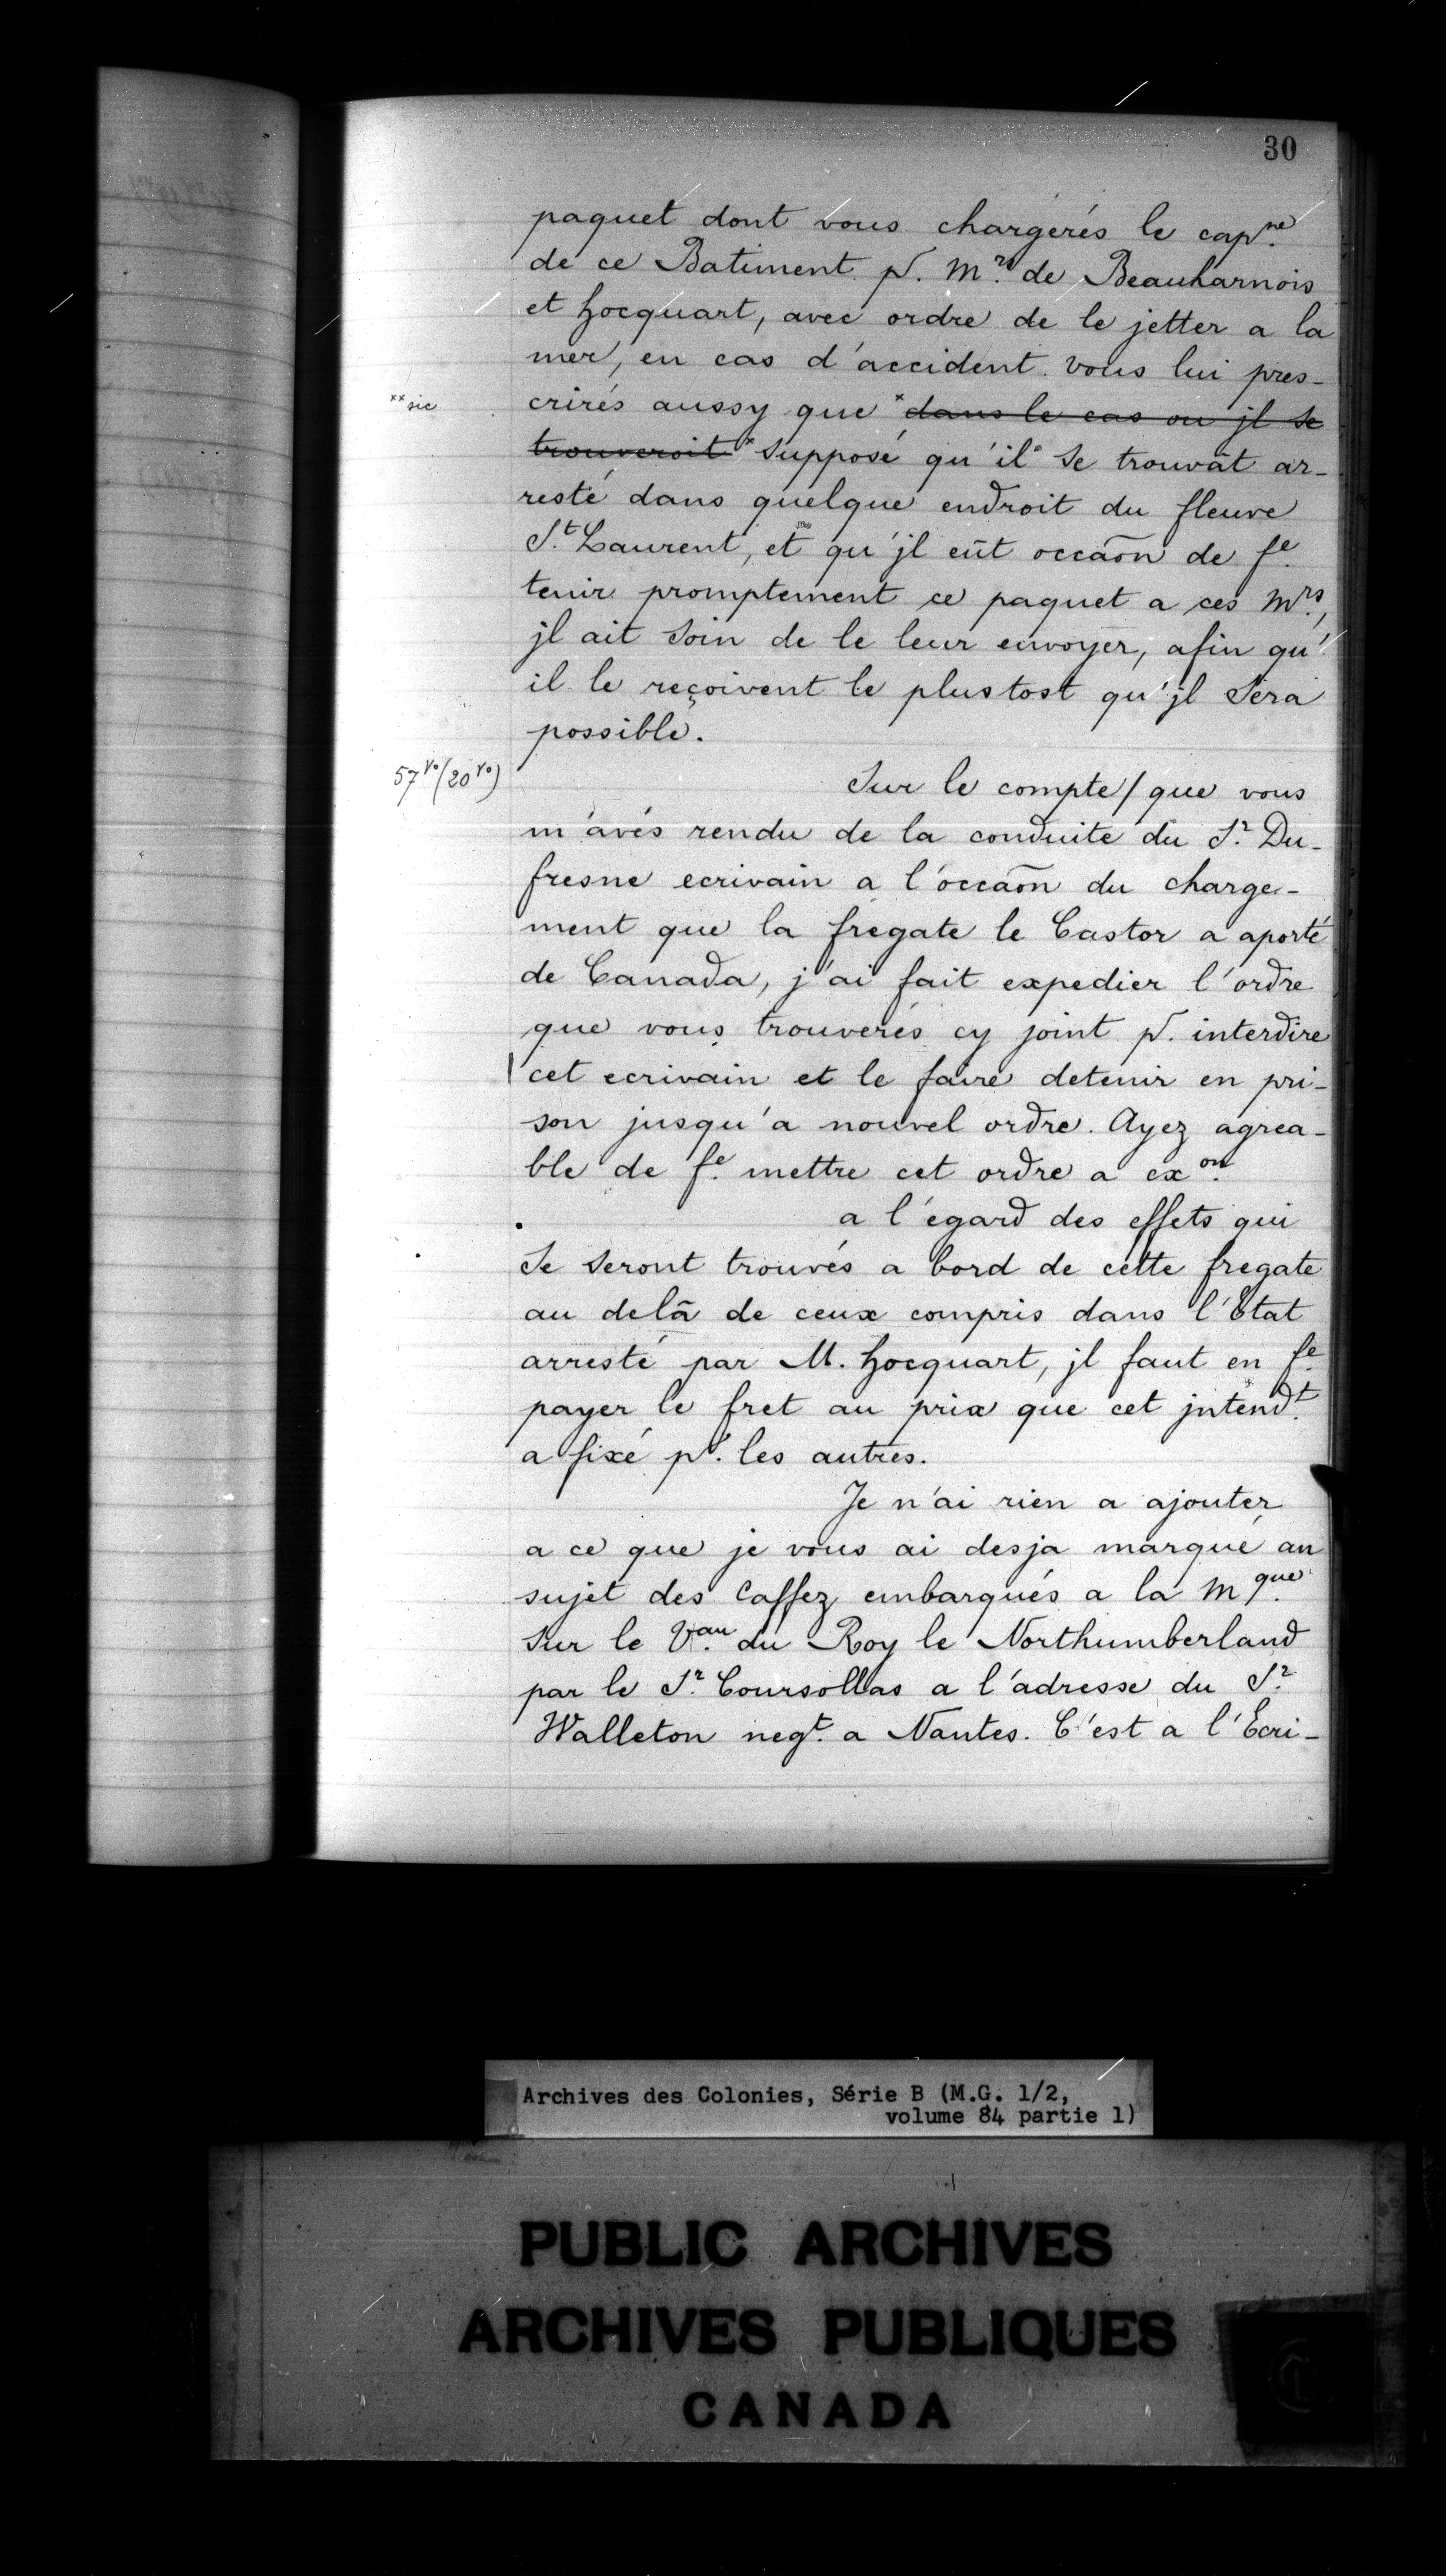 30
paquet dont vous chargerés le cap.ne
de ce Batiment pr. Mrs. de Beauharnois
et hocquart, avec ordre de le jetter a la
mer, en cas d'accident. Vous lui pres-
** sic
crirés aussy que * ~~dans le cas ou jl se~~
~~trouveroit~~ * supposé qu'il se trouvât ar-
resté dans quelque endroit du fleuve
St. Laurent, et qu'jl eût occãon de fe.
tenir promptement ce paquet a ces Mrs.,
jl ait soin de le leur envoyer, afin qu'
il le reçoivent le plustost qu'jl sera
possible.
57vo (20vo)
Sur le compte / que vous
m'avés rendu de la conduite du Sr. Du-
fresne ecrivain a l'occãon du charge-
ment que la fregate le Castor a aporté
de Canada, j'ai fait expedier l'ordre
que vous trouverés cy joint pr. interdire
cet ecrivain et le faire detenir en pri-
son jusqu'a nouvel ordre. Ayez agrea-
ble de fe. mettre cet ordre a exon.
a l'egard des effets qui
se seront trouvés a bord de cette fregate
au delà de ceux compris dans l'Etat
arresté par M. hocquart, jl faut en fe.
payer le fret au prix que cet jntendt.
a fixé pr. les autres.
Je n'ai rien a ajouter
a ce que je vous ai desja marqué au
sujet des Caffez embarqués a la Mque.
sur le Vau. du Roy le Northumberland
par le Sr. Coursollas a l'adresse du Sr.
Walleton negt. a Nantes. C'est a l'Ecri-
Archives des Colonies, Série B (M.G. 1/2,
volume 84 partie 1)
PUBLIC ARCHIVES
ARCHIVES PUBLIQUES
CANADA